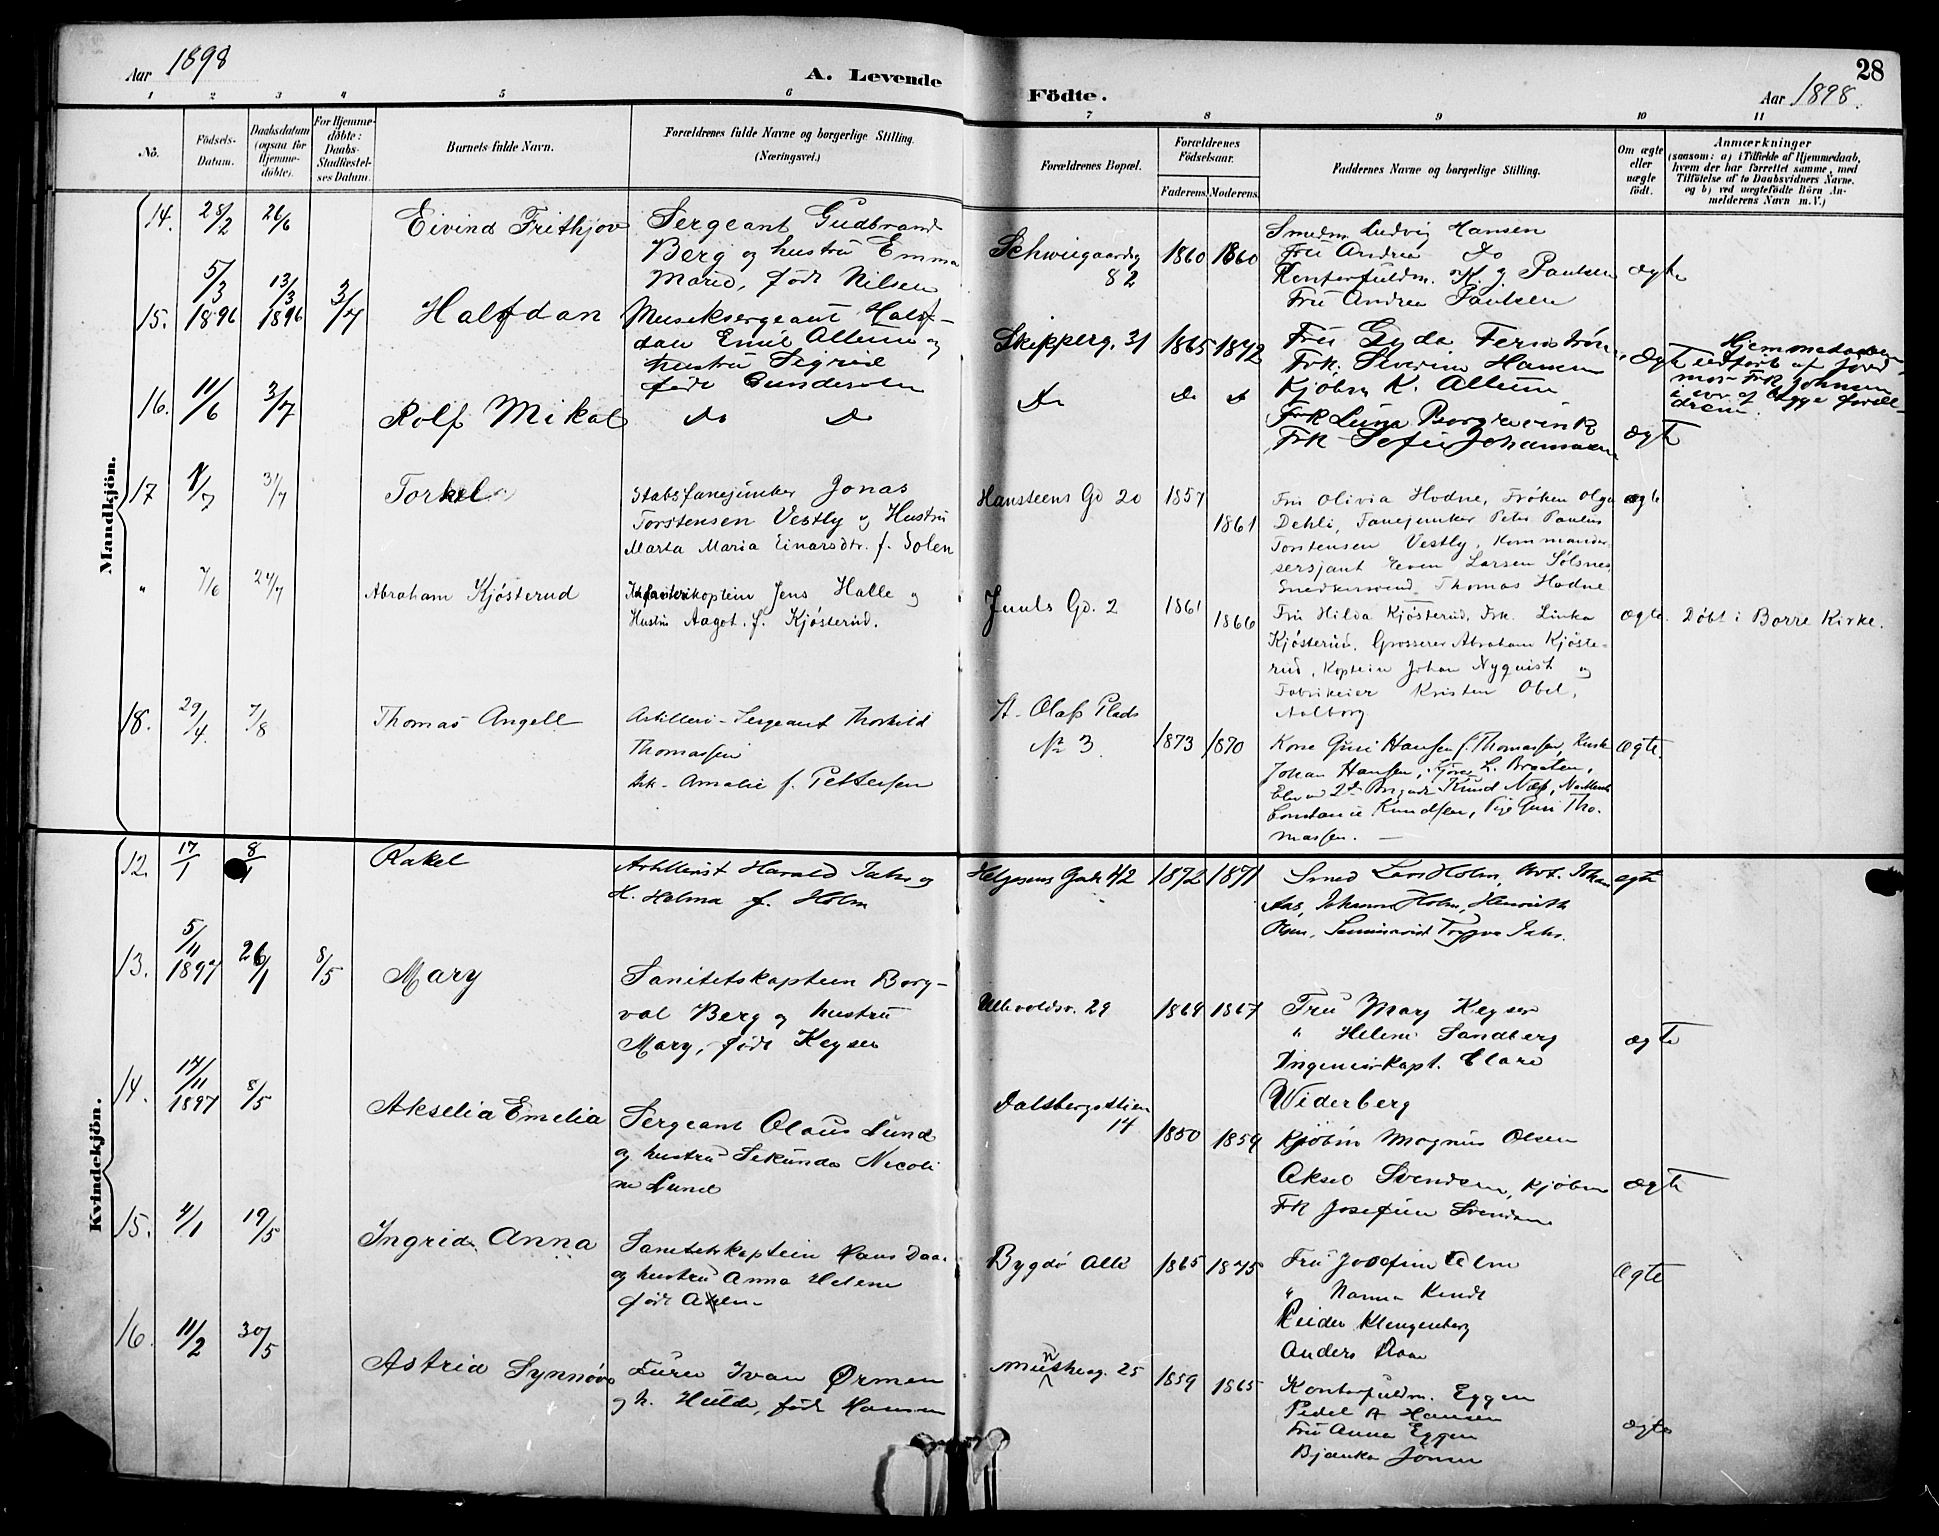 Aar 1898
A. Levende
Födte.
Aar 1898.
28
1 2 3 4 5 6 7 8 9 10 11
No.
Födsels-
Datum.
Daabsdatum
(ogsaa for
Hjemme-
döbte).
For Hjemme-
döbte:
Daabs-
Stadfæstel-
ses Datum.
Barnets fulde Navn.
Forældrenes fulde Navne og borgerlige Stilling.
(Næringsvei.)
Forældrenes Bopæl.
Forældrenes
Födselsaar.
Faderens. Moderens.
Faddernes Navne og borgerlige Stilling.
Om ægte
eller
uægte
födt.
Anmærkninger
(saasom: a) i Tilfælde af Hjemmedaab,
hvem der har forrettet samme, med
Tilföielse af to Daabsvidners Navne,
og b) ved uægtefödte Börn An-
melderens Navn m. V.)
Mandkjön.
14. 28/2 26/6 Eivind Frithjov
Sergeant Gudbrand
Berg og hustru Emma
Marie, født Nilsen
Schweigaardsg
82
1860 1860
Smedm. Ludvig Hansen
Fru Andrea Do
Kontorfuldm. K. J. Paulsen
Fru Andrea Paulsen
ægte
15. 5/3 1896 13/3 1896 3/7 Halfdan
Musiksergeant Half-
dan Emil Alteun og
hustru Sigrid
født Gundersen
Skipperg. 31
1865 1872
Fru Gyda
Frk. Severine Hansen
Kjøbm K. Alteun
Ægte
Hjemmedaaben
udført af Jord
mor Frk Johnsen
i nærv. af begge foræl-
drene.
16. 11/6 3/7 Rolf Mikal
Do Do
Do
Do Do
Frk Luisa Borgrevink
Frk Sofie Johannesen
ægte
17 1/7 31/7 Torkel
Stabsfanejunker Jonas
Torstensen Vestly og Hustru
Marta Maria Einarsdtr. f. Solen
Hansteens Gd 20
1857
1861
Fru Olivia Hodne, Frøken Olga
Dehli, Fanejunker Peter Paulus
Torstensen Vestly, Kommander
sersjant Even Larsen Sølsnes,
Snedkersvend Thomas Hodne
ægte
" 7/6 24/7 Abraham Kjösterud
Infanterikaptein Jens Halle og
Hustru Aagot. f. Kjösterud.
Juuls Gd. 2
1861
1866
Fru Hilda Kjösterud, Frk. Linka
Kjösterud, Grosserer Abraham Kjöste-
rud, Kaptein Johan Nyquist og
Fabrikeier Kristen Obel,
Aalborg
ægte.
Döbt i Borre Kirke.
18. 29/4. 7/8 Thomas Angell
Artilleri-Sergeant Thorkild
Thomassen
Hk. Amalie f. Pettersen
St. Olafs Plads
No 3
1873 1870
Kone Guri Hansen f. Thomassen,
Johan Hansen, L. Braaten,
Elev 2den Brigade Knud Næss,
Constance Knudsen, Pige Guri Tho-
massen.
ægte.
Kvindekjön.
12. 17/1 8/ Rakel
Artillerist Harald Jahr og
H. Helma f. Holm
Helgesens Gade 42
1872 1871
Smed Lars Holm, Johan
Aas, Johanna Holm, Henriette
Olsen, Seminarist Trygve Jahr.
ægte
13. 5/11 1897 26/1 8/5 Mary
Sanitetskaptein Borg-
val Berg og hustru
Mary, født Keyser
Ullevoldsv. 29
1864 1867
Fru Mary Keyser
" Helene Sandberg
Ingeniørkapt. Clare
Widerberg
ægte
14. 14/11 1897 8/5 Akselia Emelia
Sergeant Olaus Lund
og hustru Sekunda Nicoli
ne Lund
Dalsbergstien
14
1850 1859
Kjøbm Magnus Olsen
Aksel Svendsen, Kjøbm
Frk Josefine Svendsen
ægte
15. 4/1 19/5 Ingrid Anna
Sanitetskaptein Hans Daae
og hustru Anna Helene
født
Bygdø Allé
1865 1875
Fru Josefine Alme
" Nanna Kindt
Reidar Klingenberg
Anders Daae
Ægte
16. 11/2 30/5 Astrid Synnøve
Furer Ivan Ørmen
og h. Hulda, født Hansen
Munkeg. 25
1859 1865
Kontorfuldm. Eggen
Pedel A Hansen
Fru Anna Eggen
Bjanka
ægte